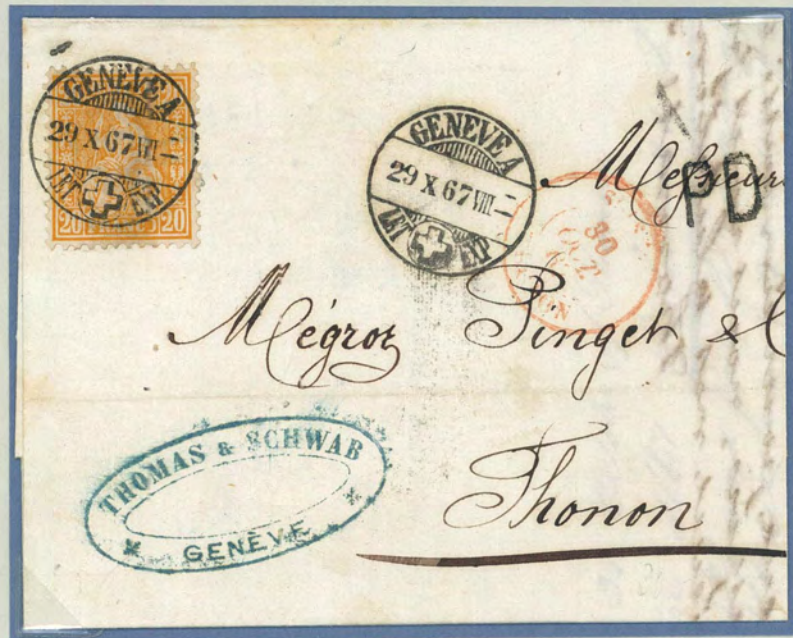 GENEVE A
29 X 67 VIII
LET EXP
20 20
GENEVE A
29 X 67 VIII
LET EXP
30
OCT
Messieur
PD
Mégroz Pinget &
Thonon
THOMAS & SCHWAB
GENÈVE